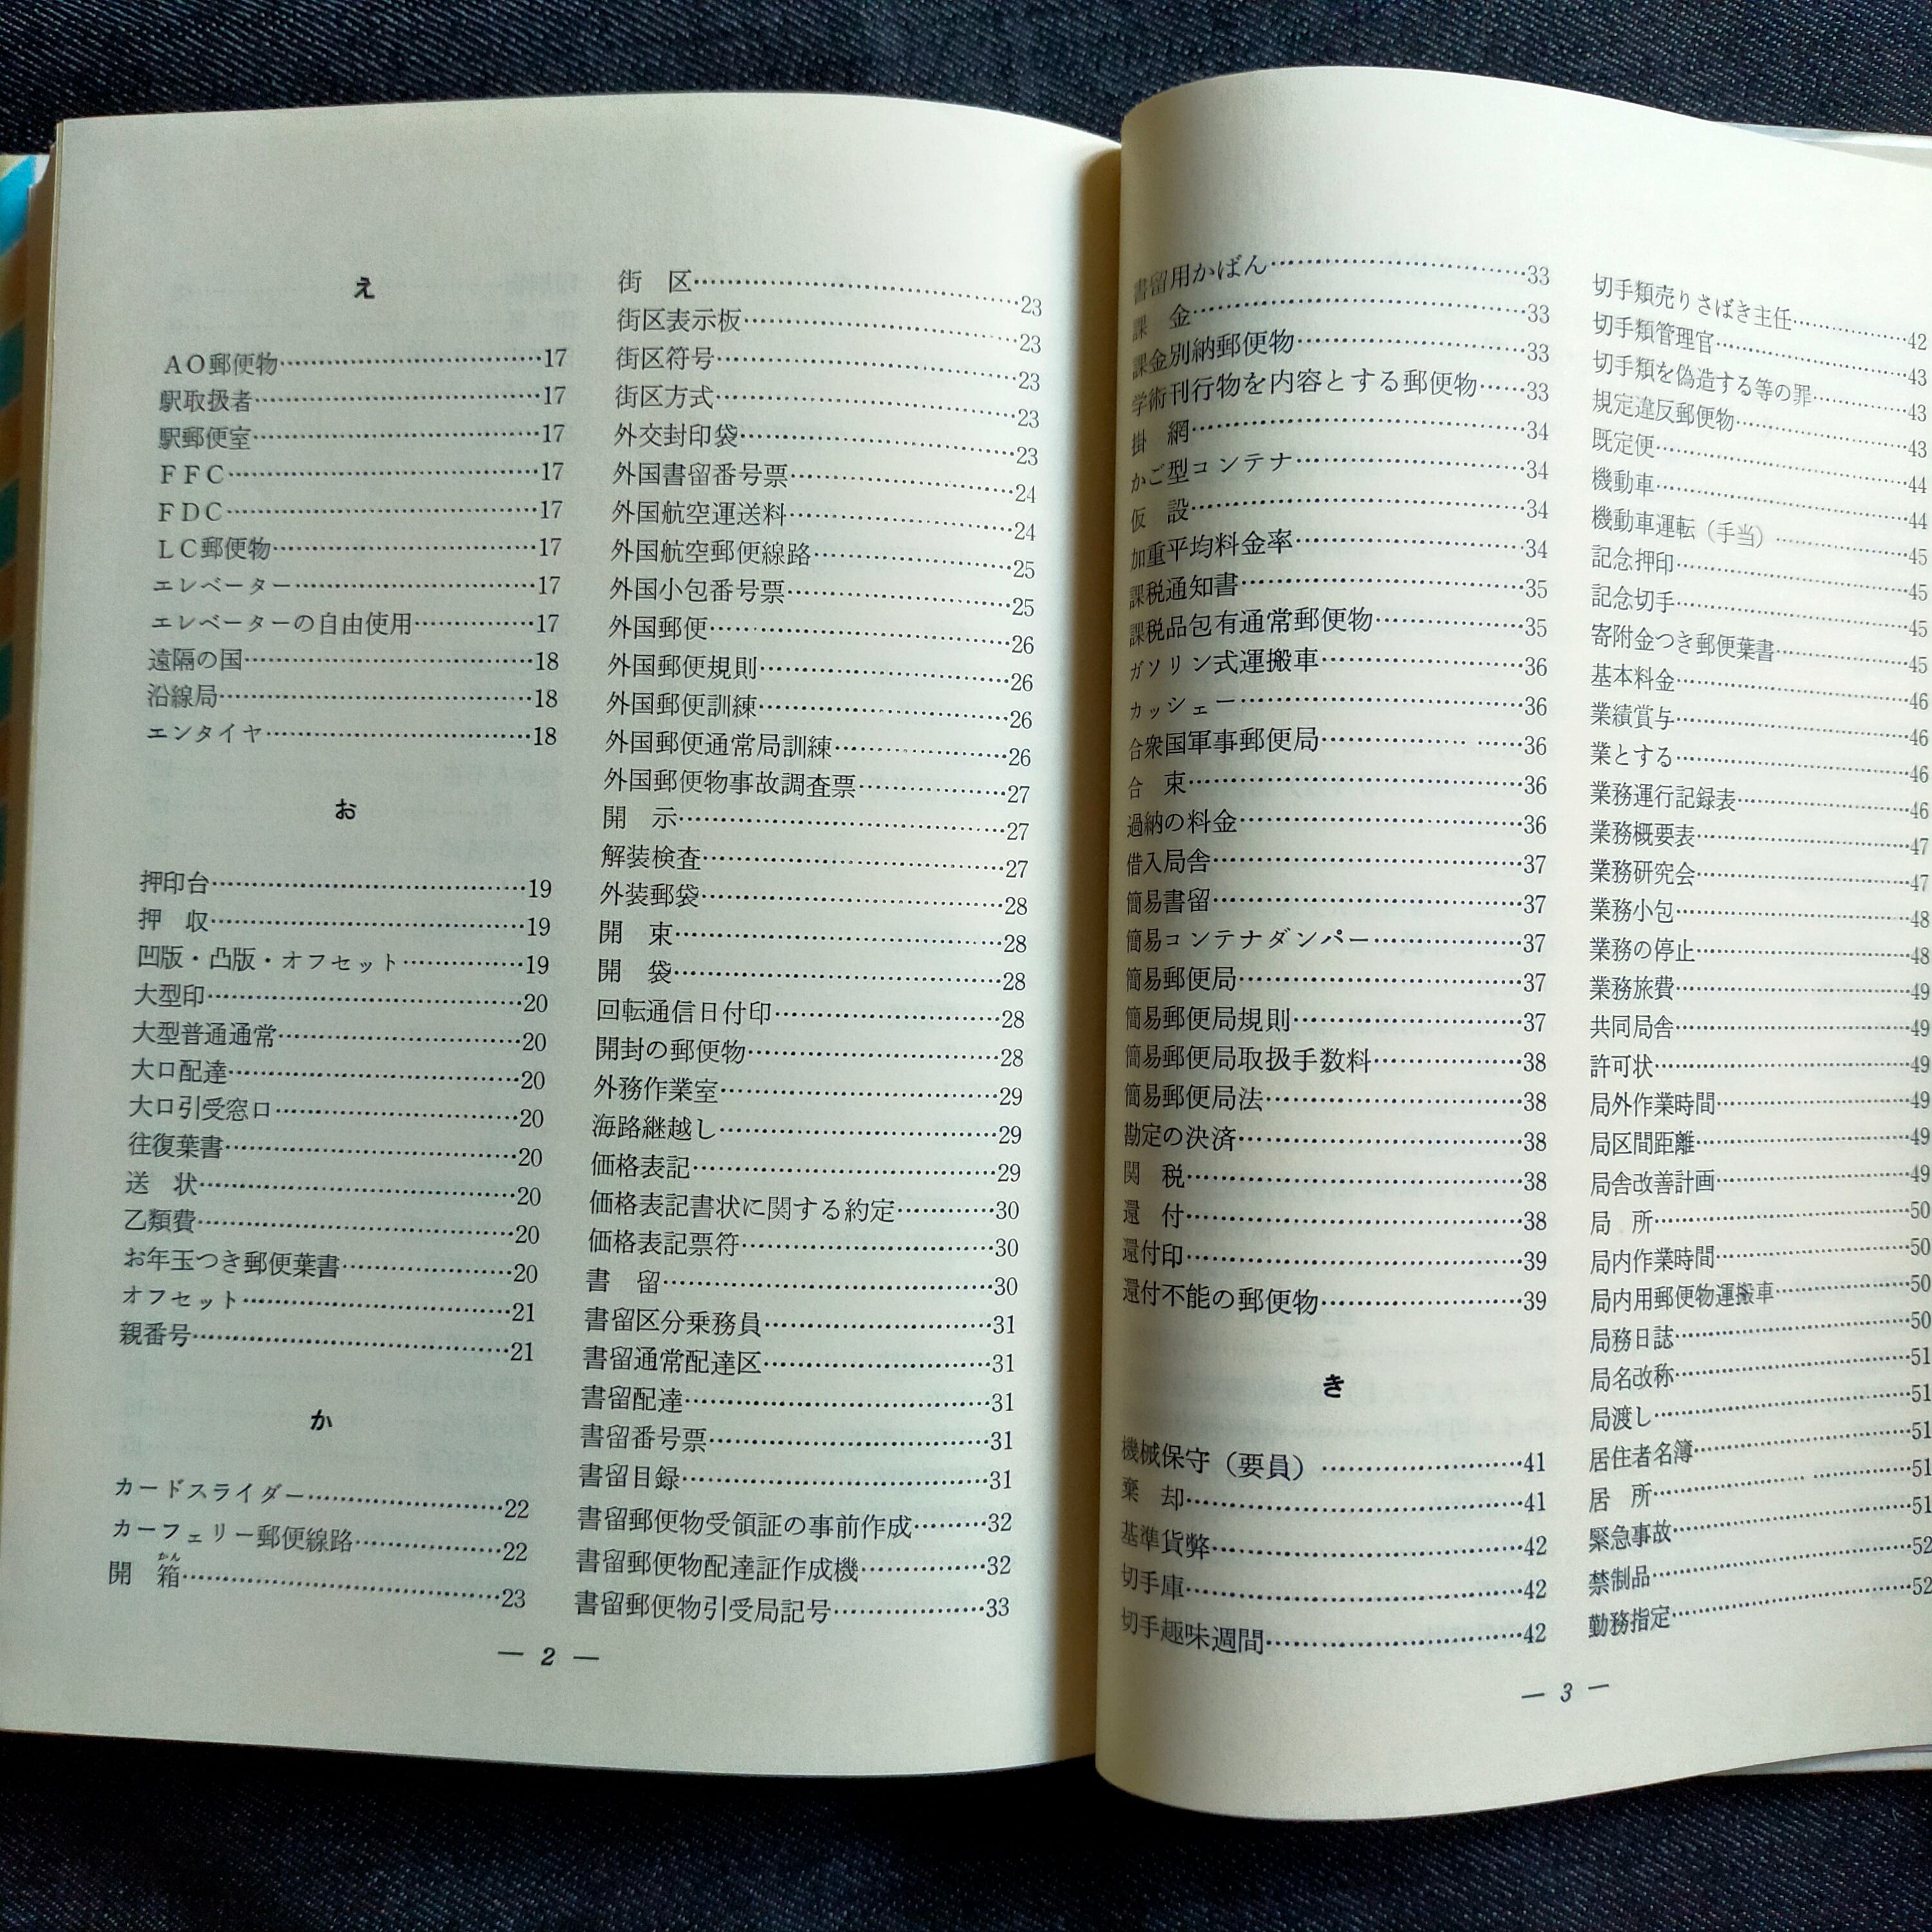 え
AO郵便物……17
駅取扱者……17
駅郵便室……17
FFC……17
FDC……17
LC郵便物……17
エレベーター……17
エレベーターの自由使用……17
遠隔の国……18
沿線局……18
エンタイヤ……18
お
押印台……19
押　収……19
凹版・凸版・オフセット……19
大型印……20
大型普通通常……20
大口配達……20
大口引受窓口……20
往復葉書……20
送　状……20
乙類費……20
お年玉つき郵便葉書……20
オフセット……21
親番号……21
か
カードスライダー……22
カーフェリー郵便線路……22
かん
開　箱……23
街　区……23
街区表示板……23
街区符号……23
街区方式……23
外交封印袋……23
外国書留番号票……24
外国航空運送料……24
外国航空郵便線路……25
外国小包番号票……25
外国郵便……26
外国郵便規則……26
外国郵便訓練……26
外国郵便通常局訓練……26
外国郵便物事故調査票……27
開　示……27
解装検査……27
外装郵袋……28
開　束……28
開　袋……28
回転通信日付印……28
開封の郵便物……28
外務作業室……29
海路継越し……29
価格表記……29
価格表記書状に関する約定……30
価格表記票符……30
書　留……30
書留区分乗務員……31
書留通常配達区……31
書留配達……31
書留番号票……31
書留目録……31
書留郵便物受領証の事前作成……32
書留郵便物配達証作成機……32
書留郵便物引受局記号……33
— 2 —
書留用かばん……33
課　金……33
課金別納郵便物……33
学術刊行物を内容とする郵便物……33
掛　網……34
かご型コンテナ……34
仮　設……34
加重平均料金率……34
課税通知書……35
課税品包有通常郵便物……35
ガソリン式運搬車……36
カッシェー……36
合衆国軍事郵便局……36
合　束……36
過納の料金……36
借入局舎……37
簡易書留……37
簡易コンテナダンパー……37
簡易郵便局……37
簡易郵便局規則……37
簡易郵便局取扱手数料……38
簡易郵便局法……38
勘定の決済……38
関　税……38
還　付……38
還付印……39
還付不能の郵便物……39
き
機械保守（要員）……41
棄　却……41
基準貨幣……42
切手庫……42
切手趣味週間……42
切手類売りさばき主任……42
切手類管理官……43
切手類を偽造する等の罪……43
規定違反郵便物……43
既定便……44
機動車……44
機動車運転（手当）……45
記念押印……45
記念切手……45
寄附金つき郵便葉書……45
基本料金……46
業績賞与……46
業とする……46
業務運行記録表……46
業務概要表……47
業務研究会……47
業務小包……48
業務の停止……48
業務旅費……49
共同局舎……49
許可状……49
局外作業時間……49
局区間距離……49
局舎改善計画……49
局　所……50
局内作業時間……50
局内用郵便物運搬車……50
局務日誌……50
局名改称……51
局渡し……51
居住者名簿……51
居　所……51
緊急事故……51
禁制品……52
勤務指定……52
— 3 —